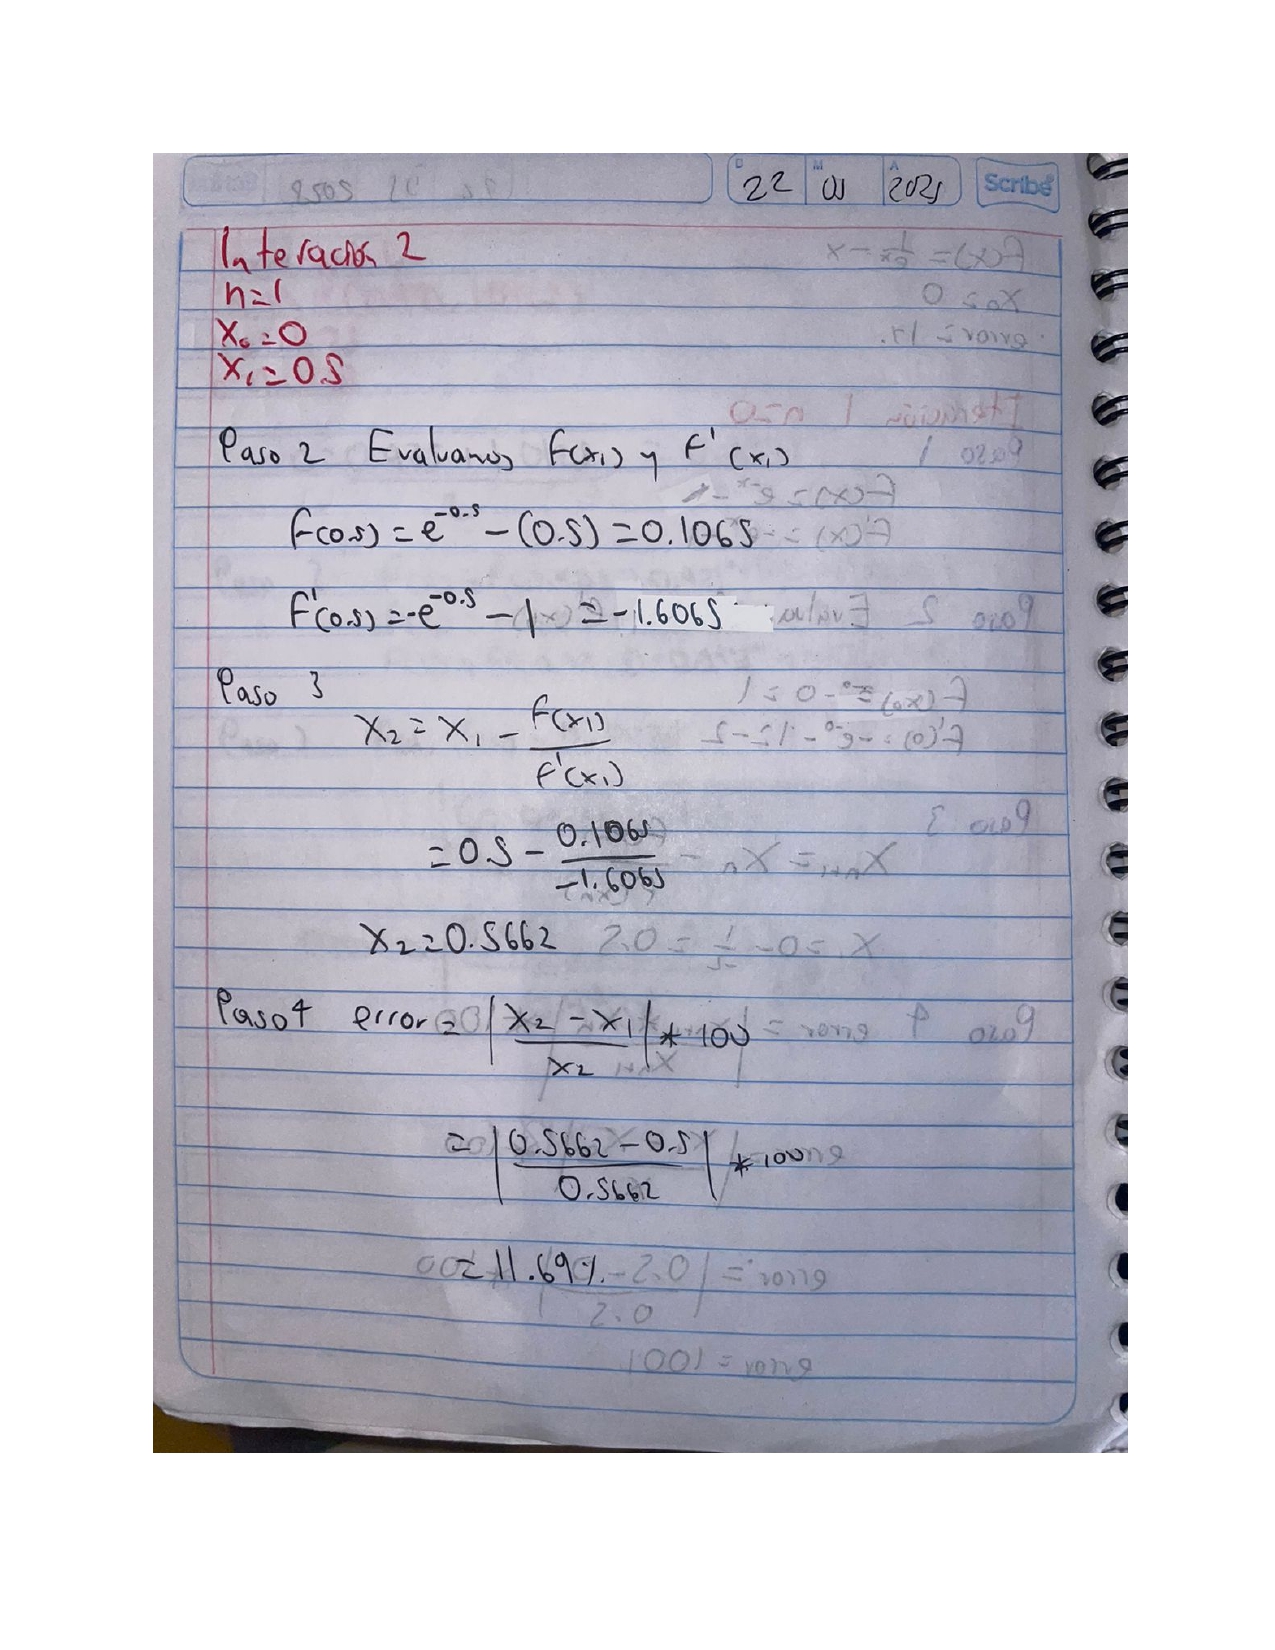 D 22 M 01 A 2025 Scribe
Interación 2
n=1
X₀=0
X₁=0.5
Paso 2 Evaluamos F(x₁) y F'(x₁)
F(0.5) = e^-0.5 - (0.5) = 0.1065
F'(0.5) = -e^-0.5 - 1 = -1.6065
Paso 3
X₂ = X₁ - F(x₁)
F'(x₁)
= 0.5 - 0.1065
-1.6065
X₂ = 0.5662
Paso 4 error = | X₂ - X₁ | * 100
X₂
= | 0.5662 - 0.5 | * 100
0.5662
= 11.69%